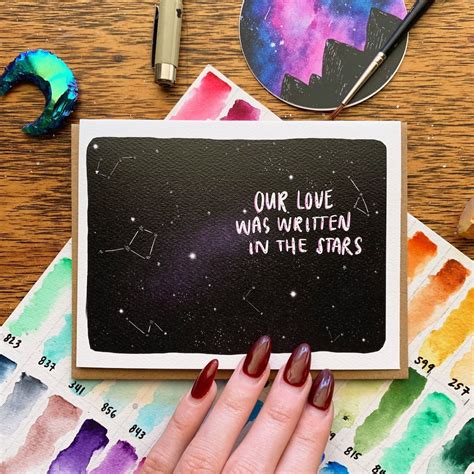 OUR LOVE
WAS WRITTEN
IN THE STARS
823
337
341
856
843
599
257
815